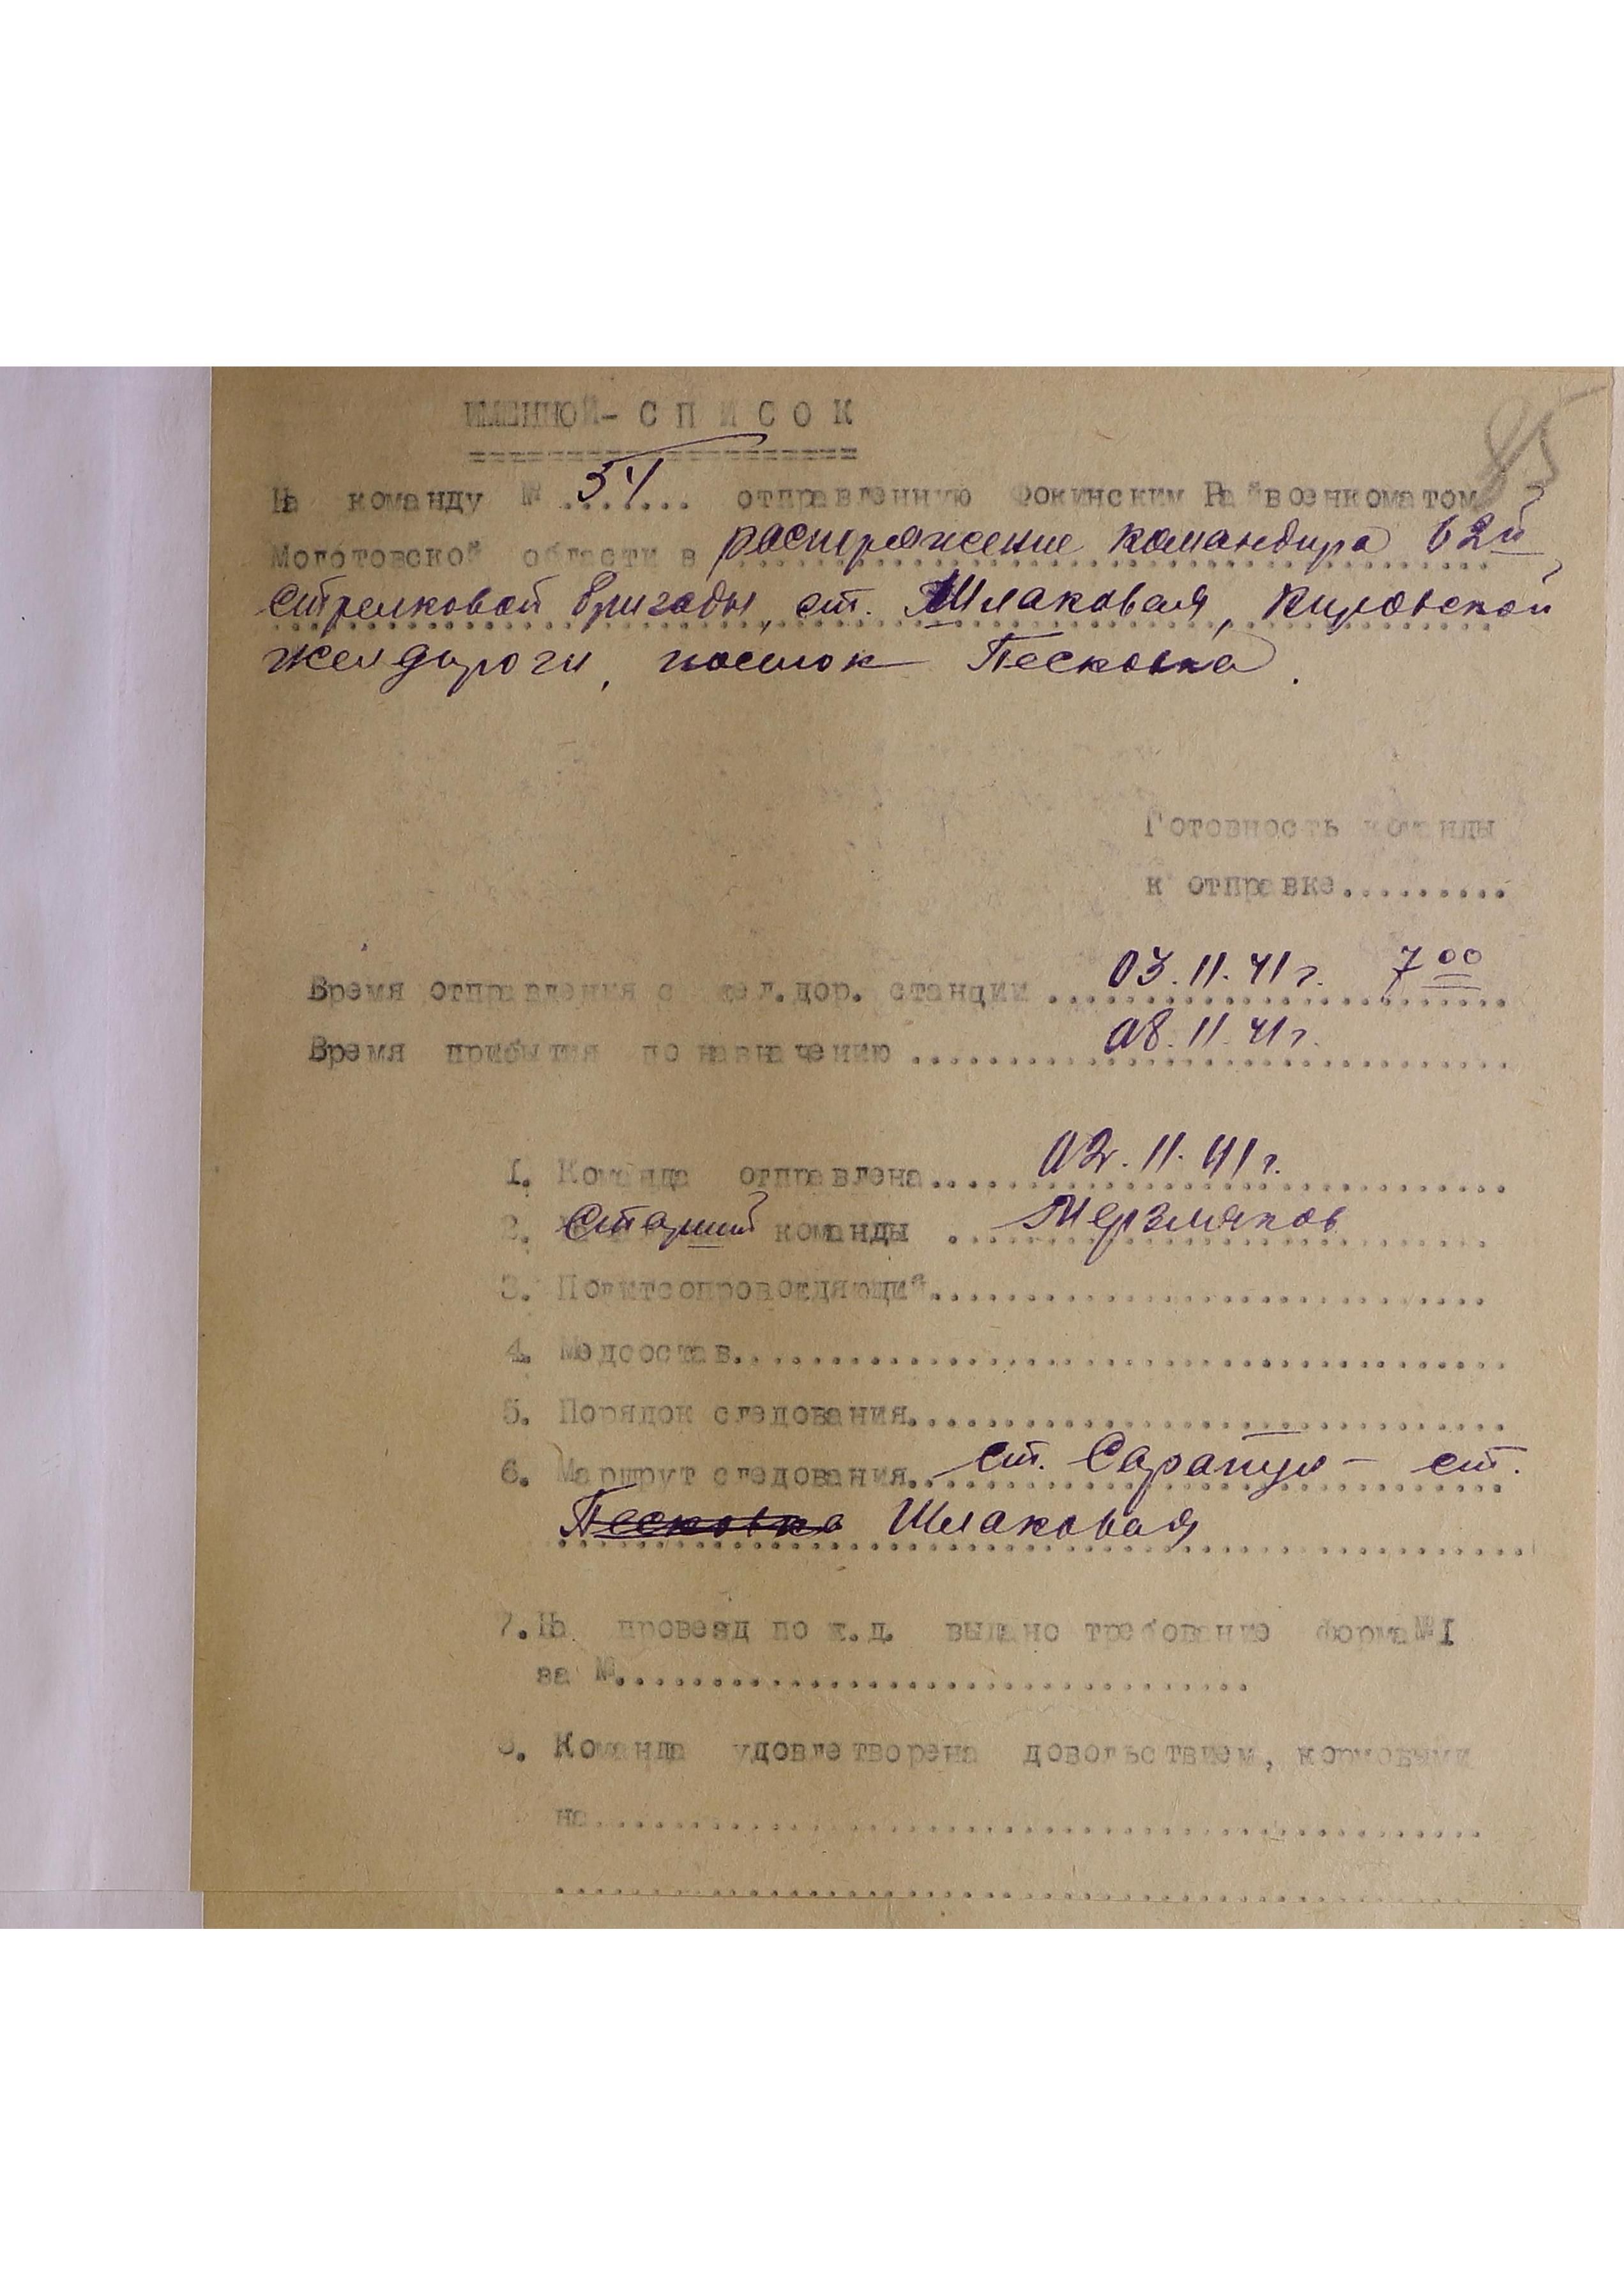 85
ИМЕННОЙ- С П И С О К
На команду № 54 отправленную Фокинским Райвоенкоматом
Молотовской области в распоряжение командира 62й
стрелковой бригады, ст. Шлаковая, Кировской
жел дороги, поселок Песковка.
Готовность команды
к отправке.........
Время отправления с жел.дор. станции 03.11.41г. 7 00
Время прибытия по назначению 08.11.41г.
1. Команда отправлена 02.11.41г.
2. Старший команды Мерзляков
3. Политсопровождающий
4. Медсостав
5. Порядок следования
6. Маршрут следования ст. Сарапул - ст.
Песковка Шлаковая
7. На проезд по ж.д. выдано требование форма №1
за №
8. Команда удовлетворена довольствием, кормовыми
на